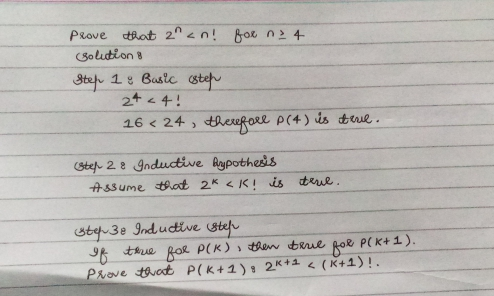 Prove that 2ⁿ < n! for n ≥ 4
Solution :
Step 1 : Basic step
2⁴ < 4!
16 < 24 , therefore P(4) is true.
Step 2 : Inductive hypothesis
Assume that 2ᴷ < K! is true.
Step 3 : Inductive step
If true for P(K) , then true for P(K+1).
Prove that P(K+1) : 2ᴷ⁺¹ < (K+1)!.